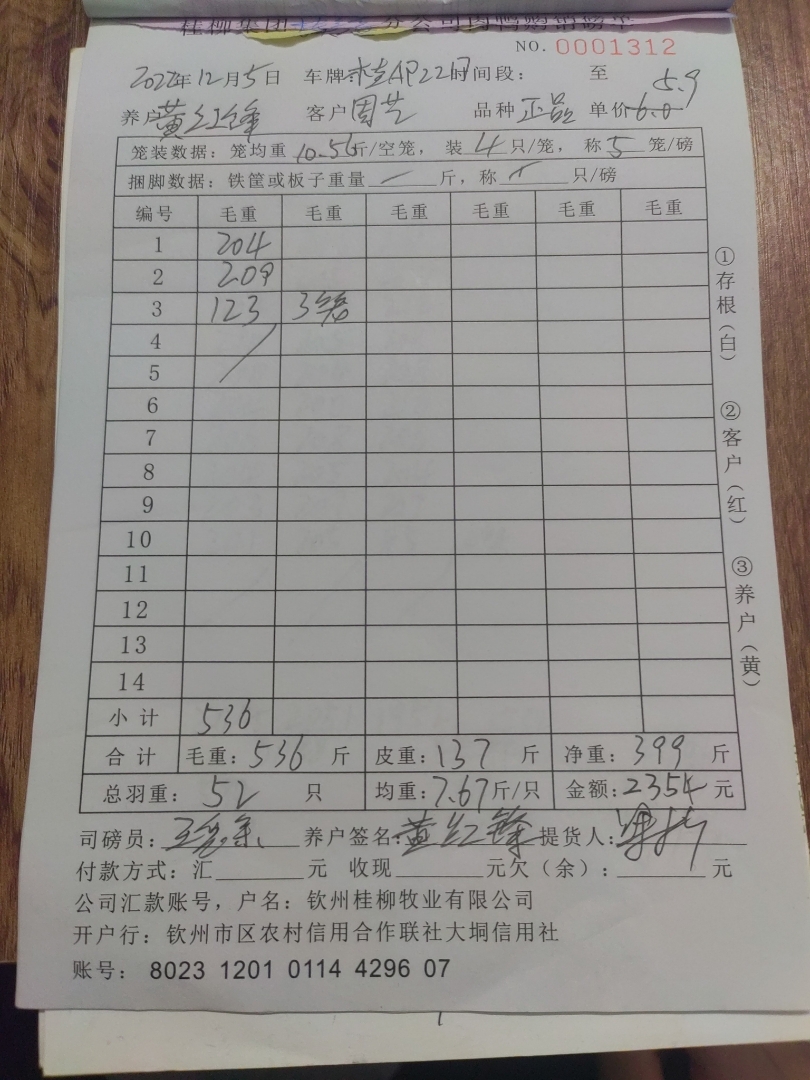 NO. 0001312
2022年12月5日 车牌: AP22 时间段: 至
5.9
养户 黄红锋 客户 周芝 品种 正品 单价 6.0
笼装数据: 笼均重 10.56 斤/空笼, 装 4 只/笼, 称 5 笼/磅
捆脚数据: 铁筐或板子重量 斤, 称 只/磅
编号 毛重 毛重 毛重 毛重 毛重 毛重
1 204
2 209
3 123 3笼
4
5
6
7
8
9
10
11
12
13
14
小计 536
合计 毛重: 536 斤 皮重: 137 斤 净重: 399 斤
总羽重: 52 只 均重: 7.67 斤/只 金额: 2354 元
司磅员: 养户签名: 黄红锋 提货人:
付款方式: 汇 元 收现 元欠(余): 元
公司汇款账号, 户名: 钦州桂柳牧业有限公司
开户行: 钦州市区农村信用合作联社大垌信用社
账号: 8023 1201 0114 4296 07
①存根(白)
②客户(红)
③养户(黄)